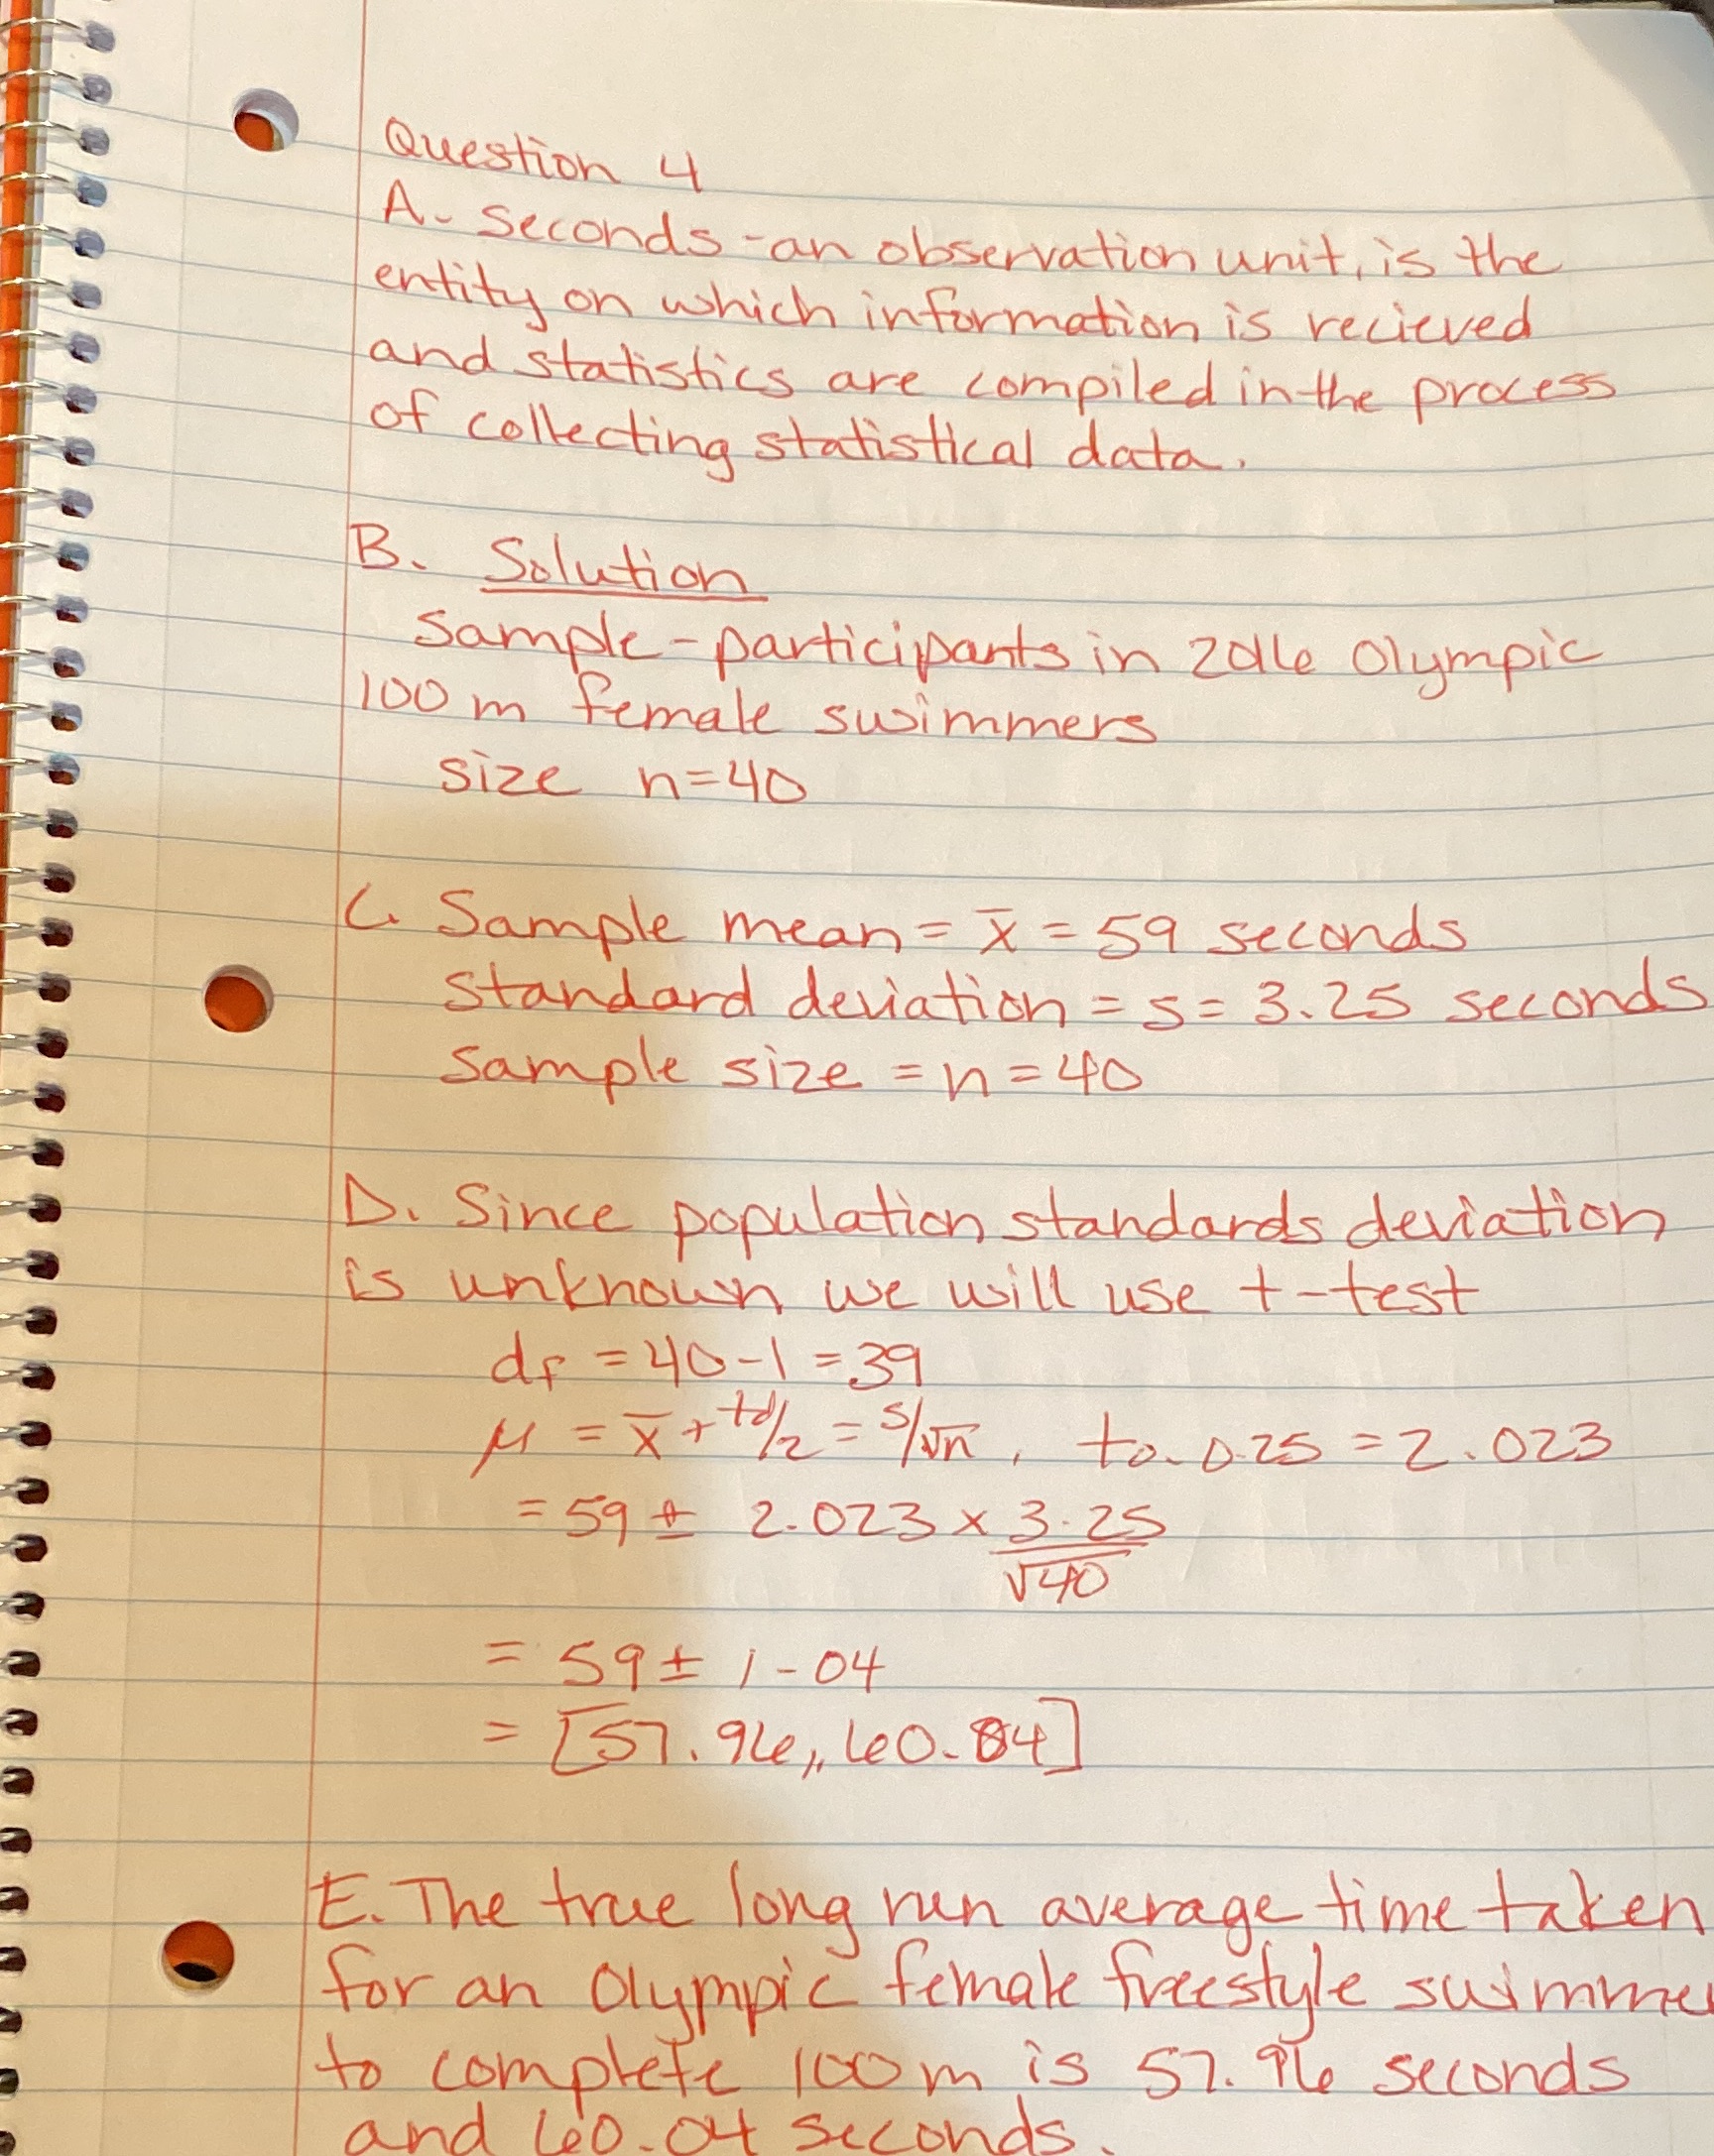 Question 4
A. Seconds - an observation unit, is the
entity on which information is recieved
and statistics are compiled in the process
of collecting statistical data.
B. Solution
Sample - participants in 2016 Olympic
100 m female swimmers
size n=40
C. Sample mean = x̄ = 59 seconds
standard deviation = s = 3.25 seconds
sample size = n = 40
D. Since population standards deviation
is unknown we will use t-test
df = 40-1 = 39
μ = x̄ + td/2 = s/√n, to.0.25 = 2.023
= 59 ± 2.023 x 3.25
√40
= 59 ± 1-04
= [57.96, 60.04]
E. The true long run average time taken
for an Olympic female freestyle swimmer
to complete 100 m is 57.96 seconds
and 60.04 seconds.